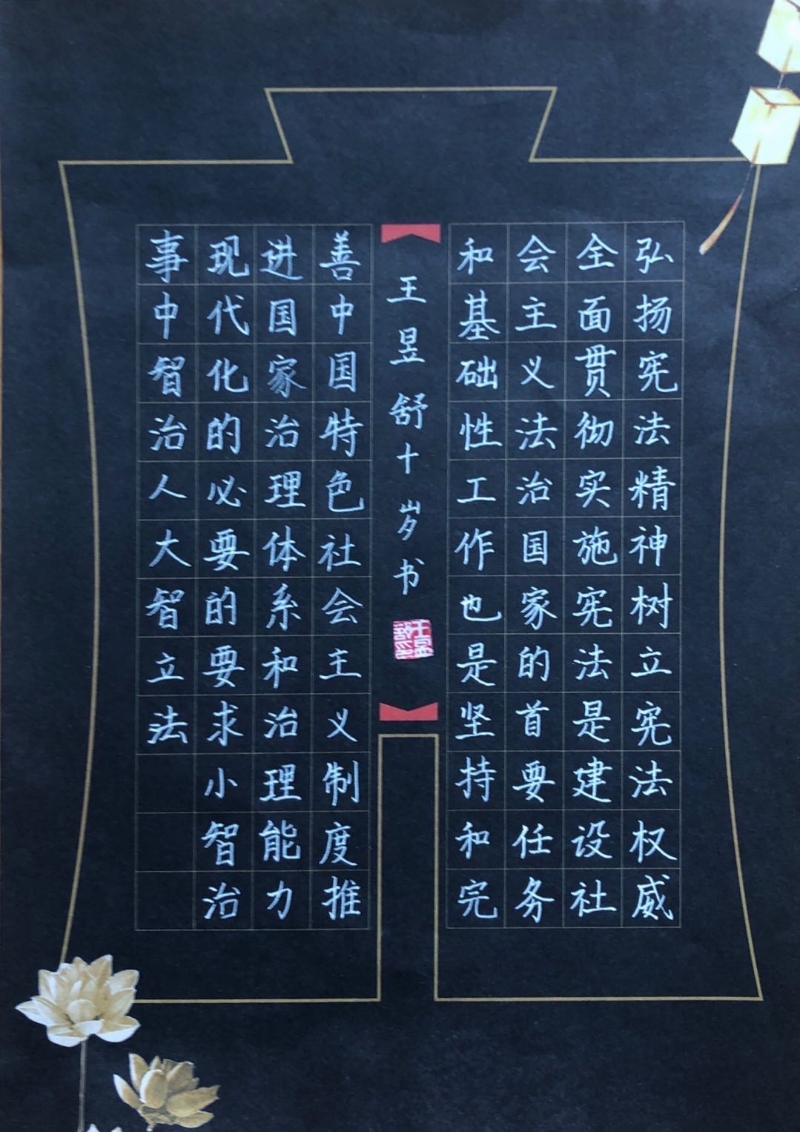 弘扬宪法精神树立宪法权威
全面贯彻实施宪法是建设社
会主义法治国家的首要任务
和基础性工作也是坚持和完
王昱舒十岁书
善中国特色社会主义制度推
进国家治理体系和治理能力
现代化的必要的要求小智治
事中智治人大智立法